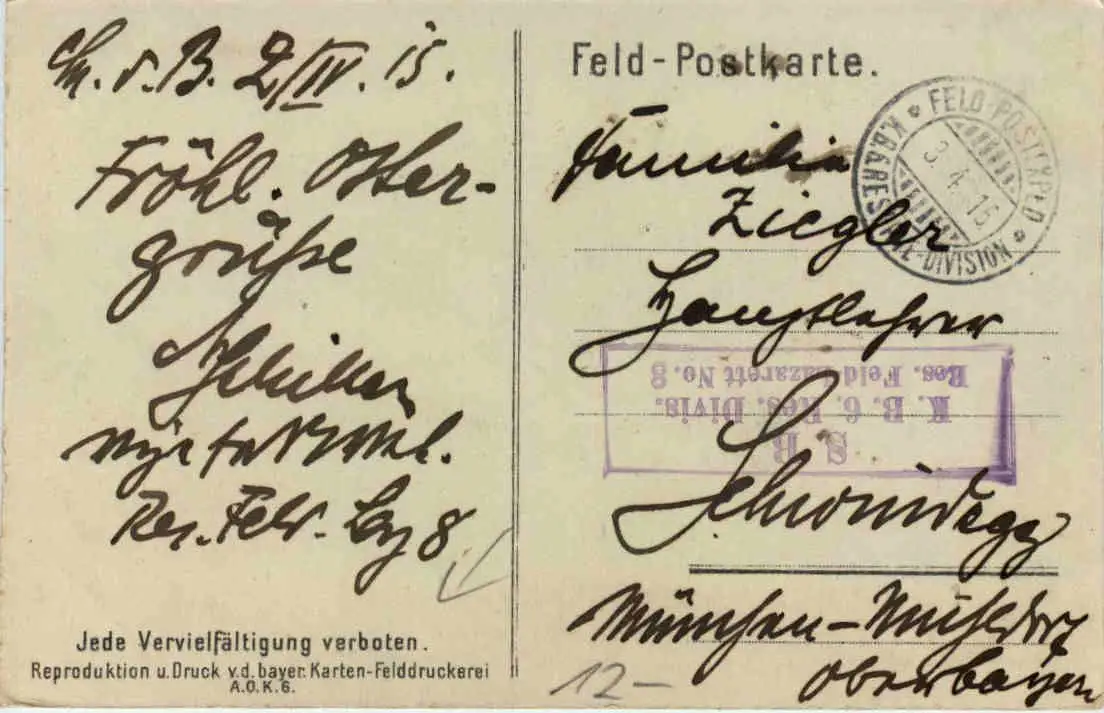 2/IV. 15.
Fröhl. Oster-
grüße
Res. Feld. Laz 8
Jede Vervielfältigung verboten.
Reproduktion u. Druck v.d. bayer. Karten-Felddruckerei
A.O.K.6.
Feld-Postkarte.
FELD-POSTEXPED.
3. 4. 15
K.B.6.RESERVE-DIVISION
Familie
Ziegler
Hauptlehrer
S. B.
K. B. 6. Res. Divis.
Res. Feld-Lazarett No. 8
München-Mühldorf
Oberbayern
12-